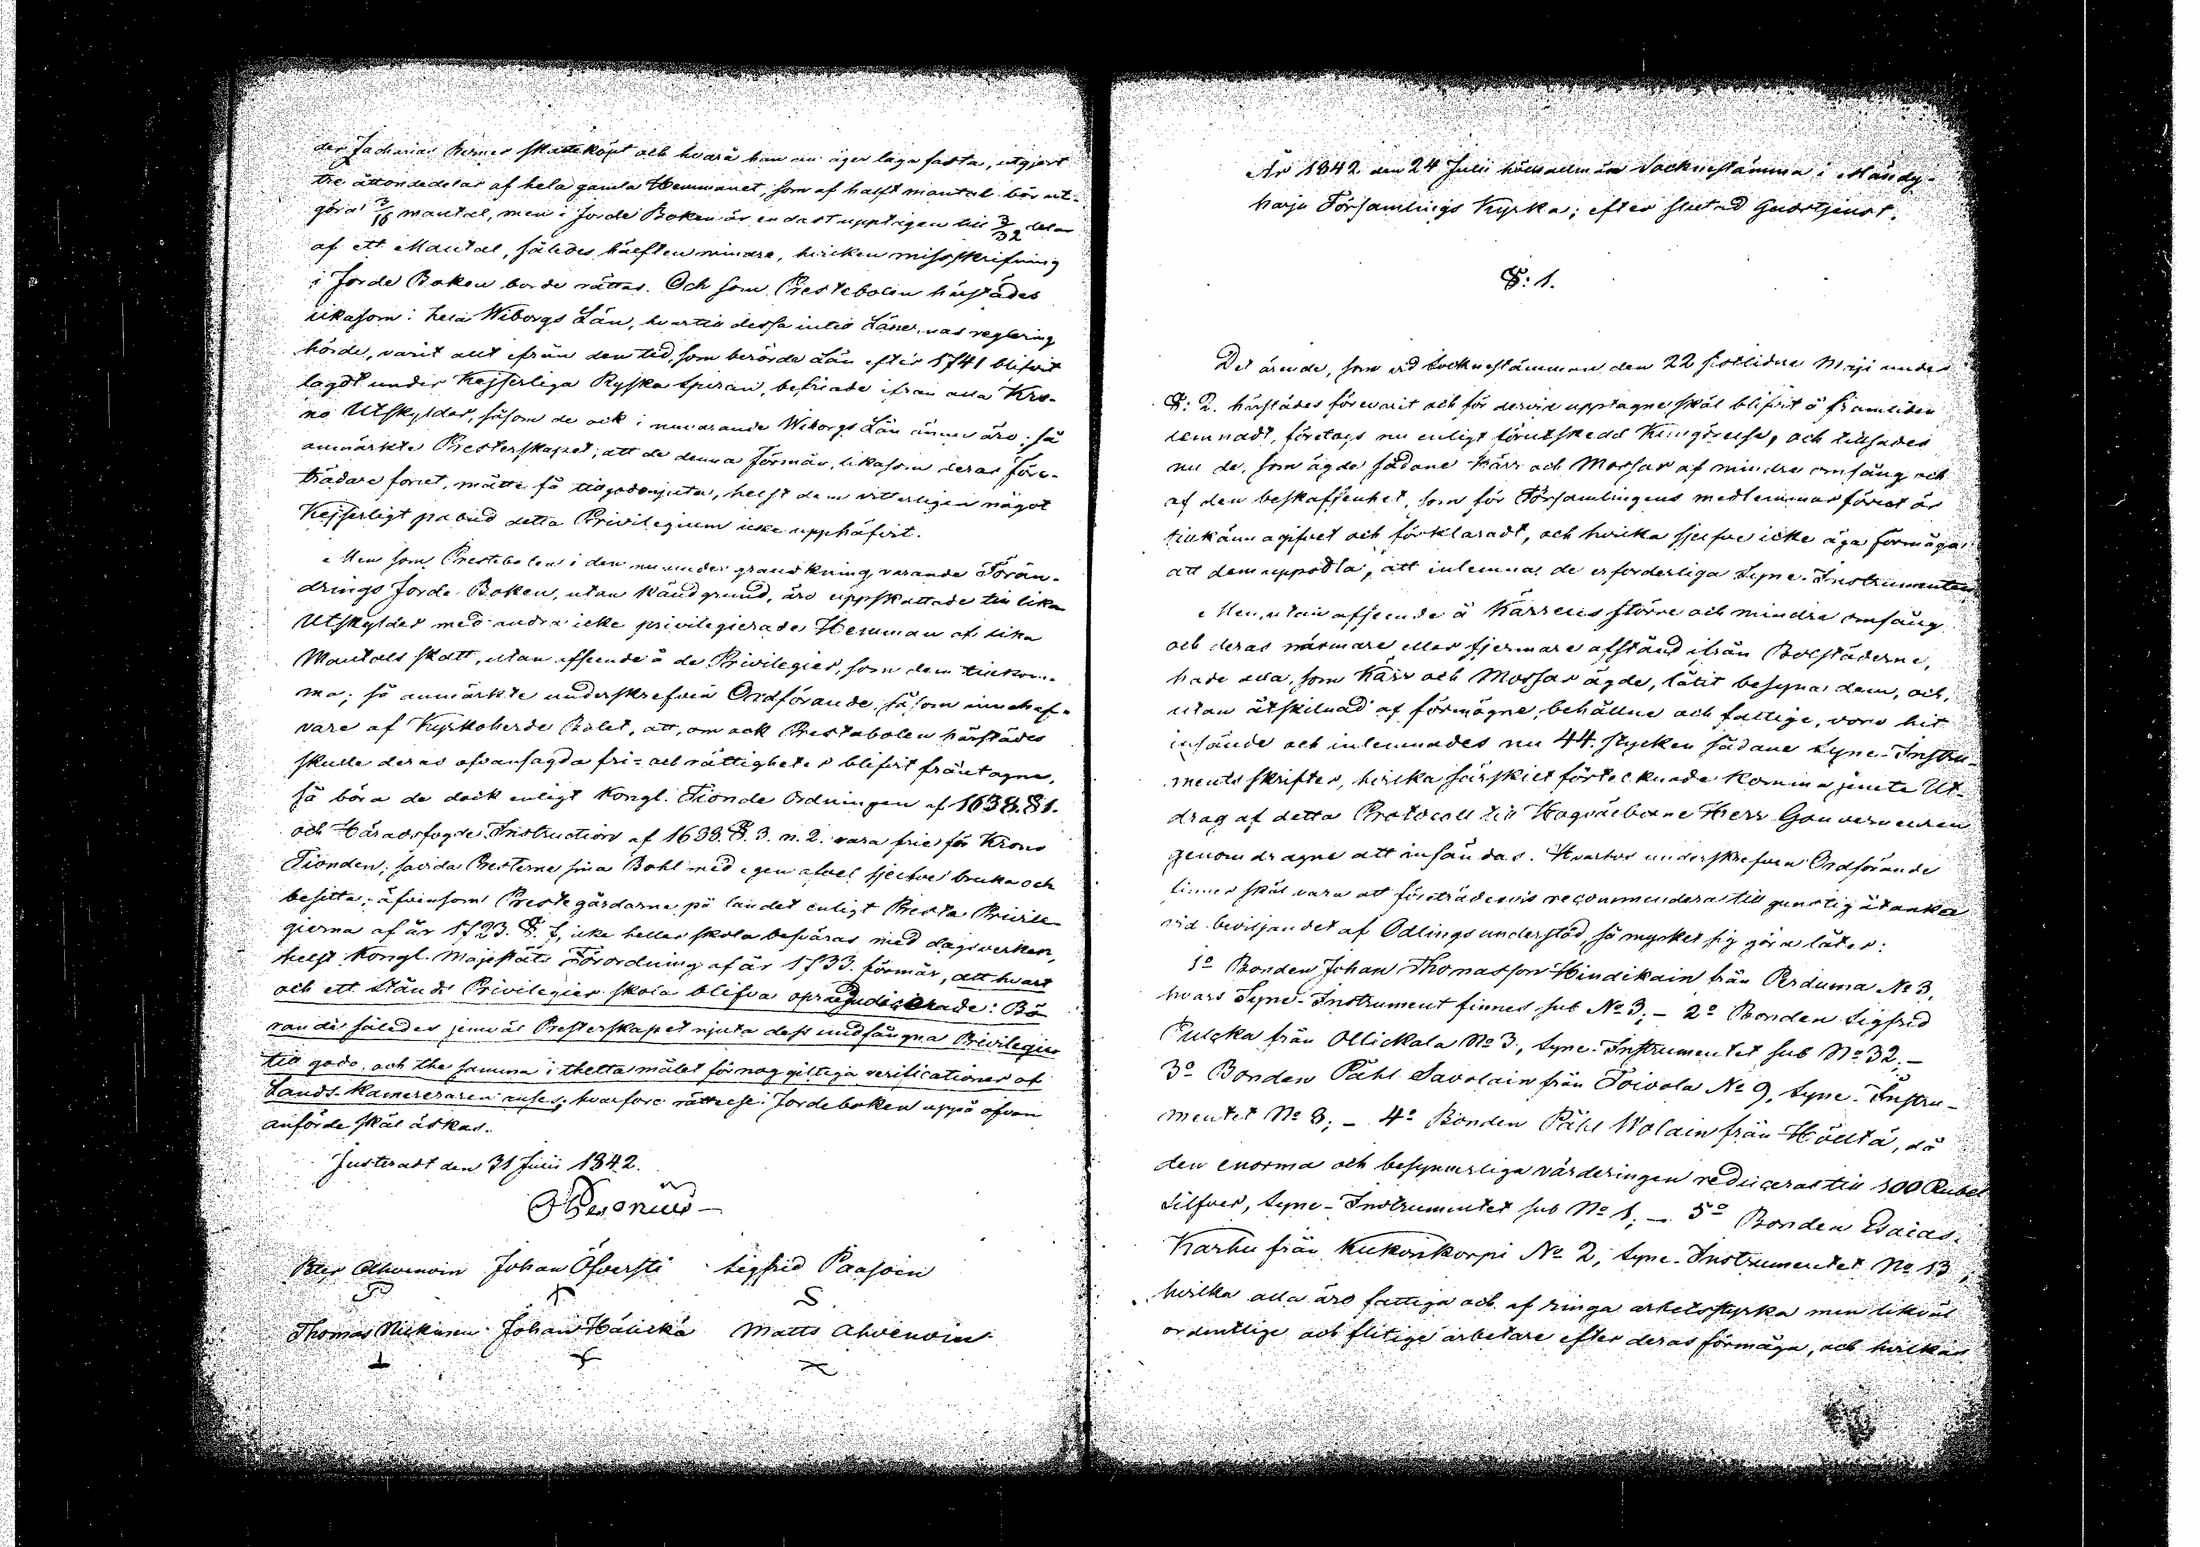 der Zacharias Berner skatteköpt och hvarå han nu äger laga fasta, utgjort
tre åttondedelar af hela gamla Hemmanet, som af halft mantal bör ut-
göra 3/16 mantal, men i Jorde Boken är endast upptagen till 3/32 delar
af ett Mantal, således hälften mindre, hvilken missskrifning
i Jorde Boken borde rättas. Och som Prestebolen härstädes
likasom i hela Wiborgs Län, hvartill dessa intill Länernas reglering
hörde, varit allt ifrån den tid, som berörde Län efter 1741 blifvit
lagdt under Kejserliga Ryska Spiran, befriade ifrån alla Kro-
no Utskylder, såsom de ock i nuvarande Wiborgs Län ännu äro; så
anmärkte Presterskapet, att de denna förmån, likasom deras före-
trädare förut, måtte få tillgodonjuta, helst dem vitterligen något
Kejserligt påbud detta Privilegium icke upphäfvit.
Men som Prestebolen i den nu under granskning varande Förän-
drings Jorde Boken, utan känd grund, äro uppskattade till lika
Utskylder med andra icke privilegierade Hemman af lika
Mantals skatt, utan afseende å de Privilegier, som dem tillkom-
ma; så anmärkte underskrefven Ordförande, såsom innehaf-
vare af Kyrkoherde Bolet, att, om ock Prestabolen härstädes
skulle deras ofvansagda fri- och rättigheter blifvit fråntagne,
så böra de dock enligt Kongl. Tionde Ordningen af 1638. § 1.
och Häradsfogde Instruction af 1638. §. 3. n. 2. vara frie för Krono
Tionden, såvida Presterne sina Bohl med egen afvel sjelfve bruka och
besitta; äfvensom Prestegårdarne på landet enligt Presta Privile-
gierna af år 1723. §. 7, icke heller skola besväras med dagsverken,
helst Kongl. Majestäts Förordning af år 1733. förmår, att hvart
och ett Stånds Privilegier skola blifva opræjudicerade: Bö-
rande således jemväl Presterskapet njuta dess undfångna Privilegier
till godo, och the samma i thetta målet för nog giltiga verificationer af
Lands-Kamereraren anses; hvarföre rättelse i Jordeboken uppå ofvan
anförde skäl äskas.
Justeradt den 31 Julii 1842.
Peter Ahvenoin Johan Öfversti Sigfrid Paasoin
Thomas Nickunen Johan Häiickä Matts Ahvenoin
År 1842 den 24 Julii hölls allmän Socknestämma i Mändy-
harju Församlings Kyrka; efter slutad Gudstjenst.
§: 1.
Det ärende, som vid Socknestämman den 22 sistlidne Maji under
§: 2. härstädes förevarit och för dervid upptagne skäl blifvit å framtiden
lemnadt, företogs nu enligt förutskedd Kungörelse, och tillsades
nu de, som ägde sådane Kärr och Mossar af mindre omfång och
af den beskaffenhet, som för Församlingens medlemmar förut är
tillkännagifvet och förklaradt, och hvilka sjelfve icke äga förmåga
att dem uppodla, att inlemna de erforderliga Syne-Instrumenten.
Men, utan afseende å Kärrens större och mindre omfång
och deras närmare eller fjermare afstånd ifrån Bolstäderne,
hade alla, som Kärr och Mossar ägde, låtit besyna dem, och,
utan åtskilnad af förmögne, behållne och fattige, voro hit
insände och inlemnades nu 44. stycken sådane Syne-Instru-
ments skrifter, hvilka särskilt förtecknade komma jemte Ut-
drag af detta Protocoll till Högvälborne Herr Gouverneuren
genom dragne att insändas. Hvarhos underskrefven Ordförande
finner skäl vara att företrädesvis recommendera till gunstig åtanka
vid beviljandet af Odlingsunderstöd så mycket sig göra låter:
1o Bonden Johan Thomasson Hindikain från Perduma No 3,
hvars Syne-Instrument finnes sub No 3; – 2o Bonden Sigfrid
Pulcka från Ollickala No 3, Syne-Instrumentet sub No 32; –
3o Bonden Påhl Savolain från Toivola No 9, Syne-Instru-
mentet No 8; – 4o Bonden Påhl Wolain från Höltä, då
den enorma och besynnerliga värderingen reduceras till 100 Rubel
Silfver, Syne-Instrumentet sub No 1; – 5o Bonden Esaias
Karhu från Kukonkorpi No 2, Syne-Instrumentet No 13;
hvilka alla äro fattiga och af ringa arbetsstyrka men likväl
ordentlige och flitige arbetare efter deras förmåga, och hvilkas